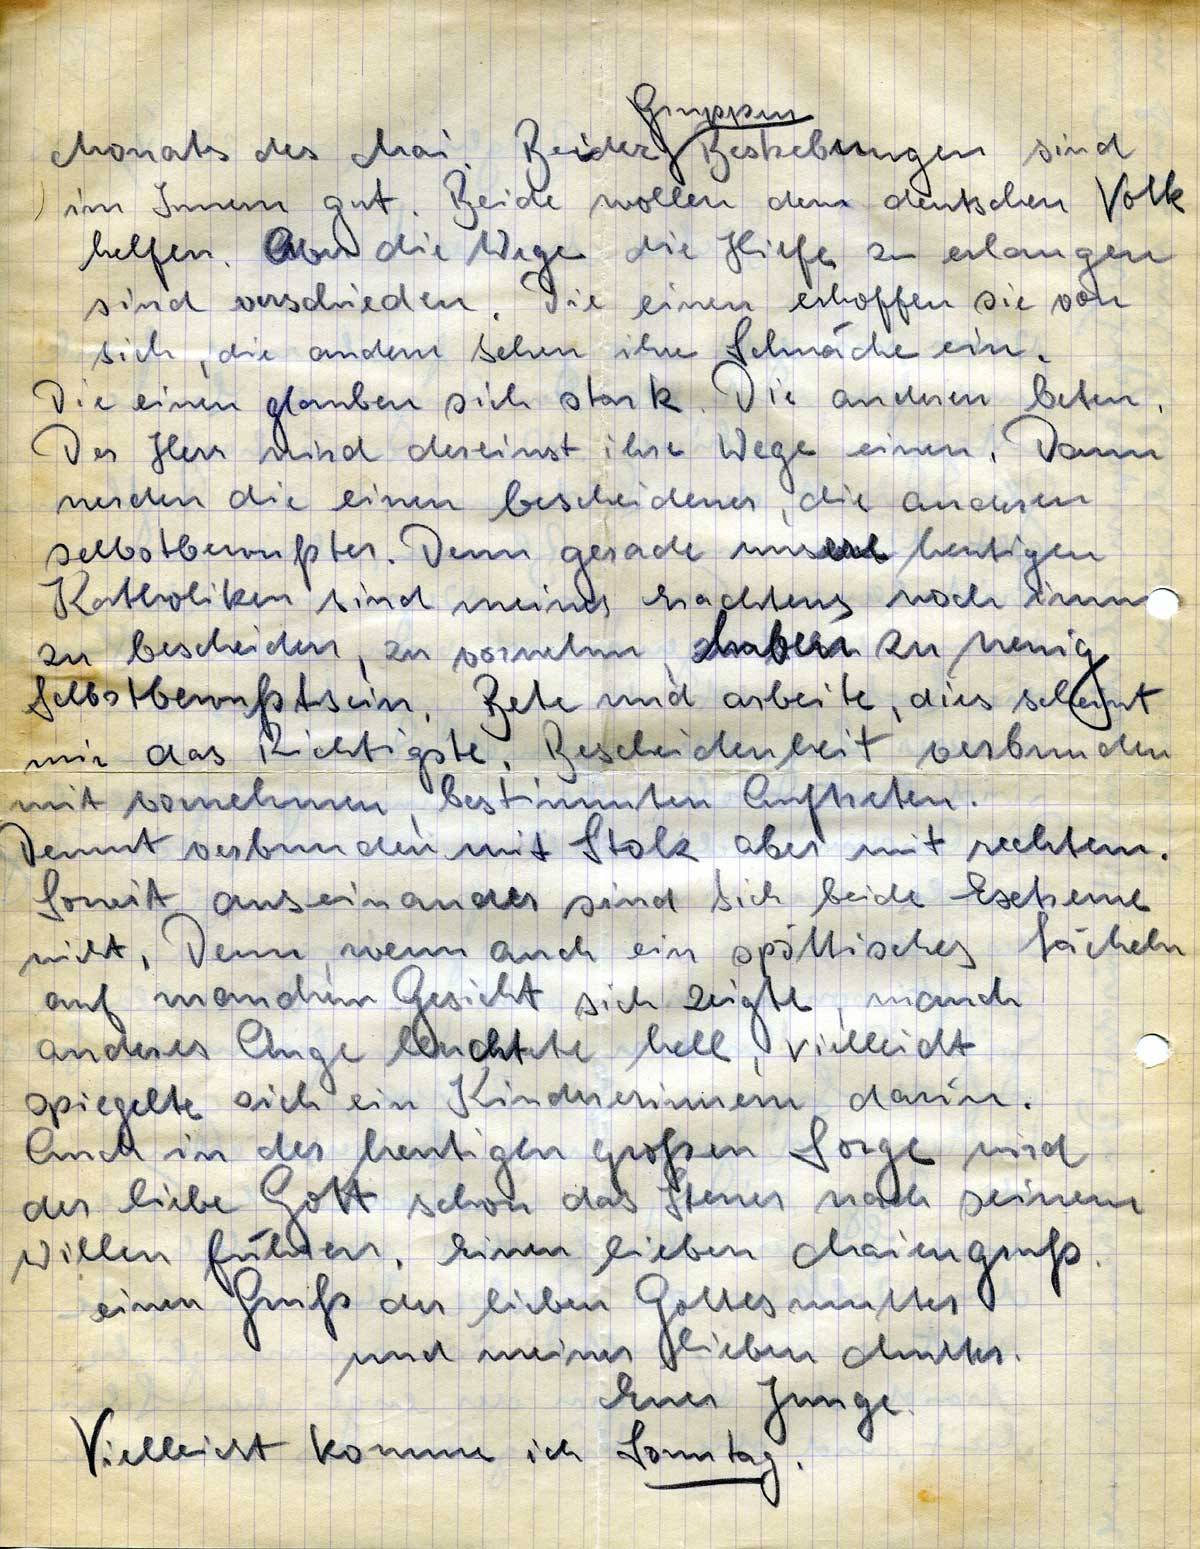 Gruppen
Monats des Mai. Beider Bestrebungen sind
im Innern gut. Beide wollen dem deutschen Volk
helfen. Aber die Wege die Hilfe zu erlangen
sind verschieden. Die einen erhoffen sie von
sich, die andern sehen ihre Schwäche ein.
Die einen glauben sich stark. Die anderen beten.
Der Herr wird dereinst ihre Wege einen. Dann
werden die einen bescheidener, die anderen
selbstbewußter. Denn gerade unsere heutigen
Katholiken sind meines Erachtens noch imm
zu bescheiden, zu vornehm, haben zu wenig
Selbstbewußtsein. Bete und arbeite, dies scheint
mir das Richtigste. Bescheidenheit verbunden
mit vornehmen, bestimmten Auftreten.
Demut verbunden mit Stolz aber mit rechtem.
Soweit auseinander sind sich beide Extreme
nicht. Denn, wenn auch ein spöttisches Lächeln
auf manchem Gesicht sich zeigte, manch
anderes Auge leuchtete hell, vielleicht
spiegelte sich ein Kindserinnern darin.
Auch in der heutigen großen Sorge wird
der liebe Gott schon das Steuer nach seinem
Willen führen. Einen lieben Maiengruß.
einen Gruß der lieben Gottesmutter
und meiner lieben Mutter.
Euer Junge.
Vielleicht komme ich Sonntag.